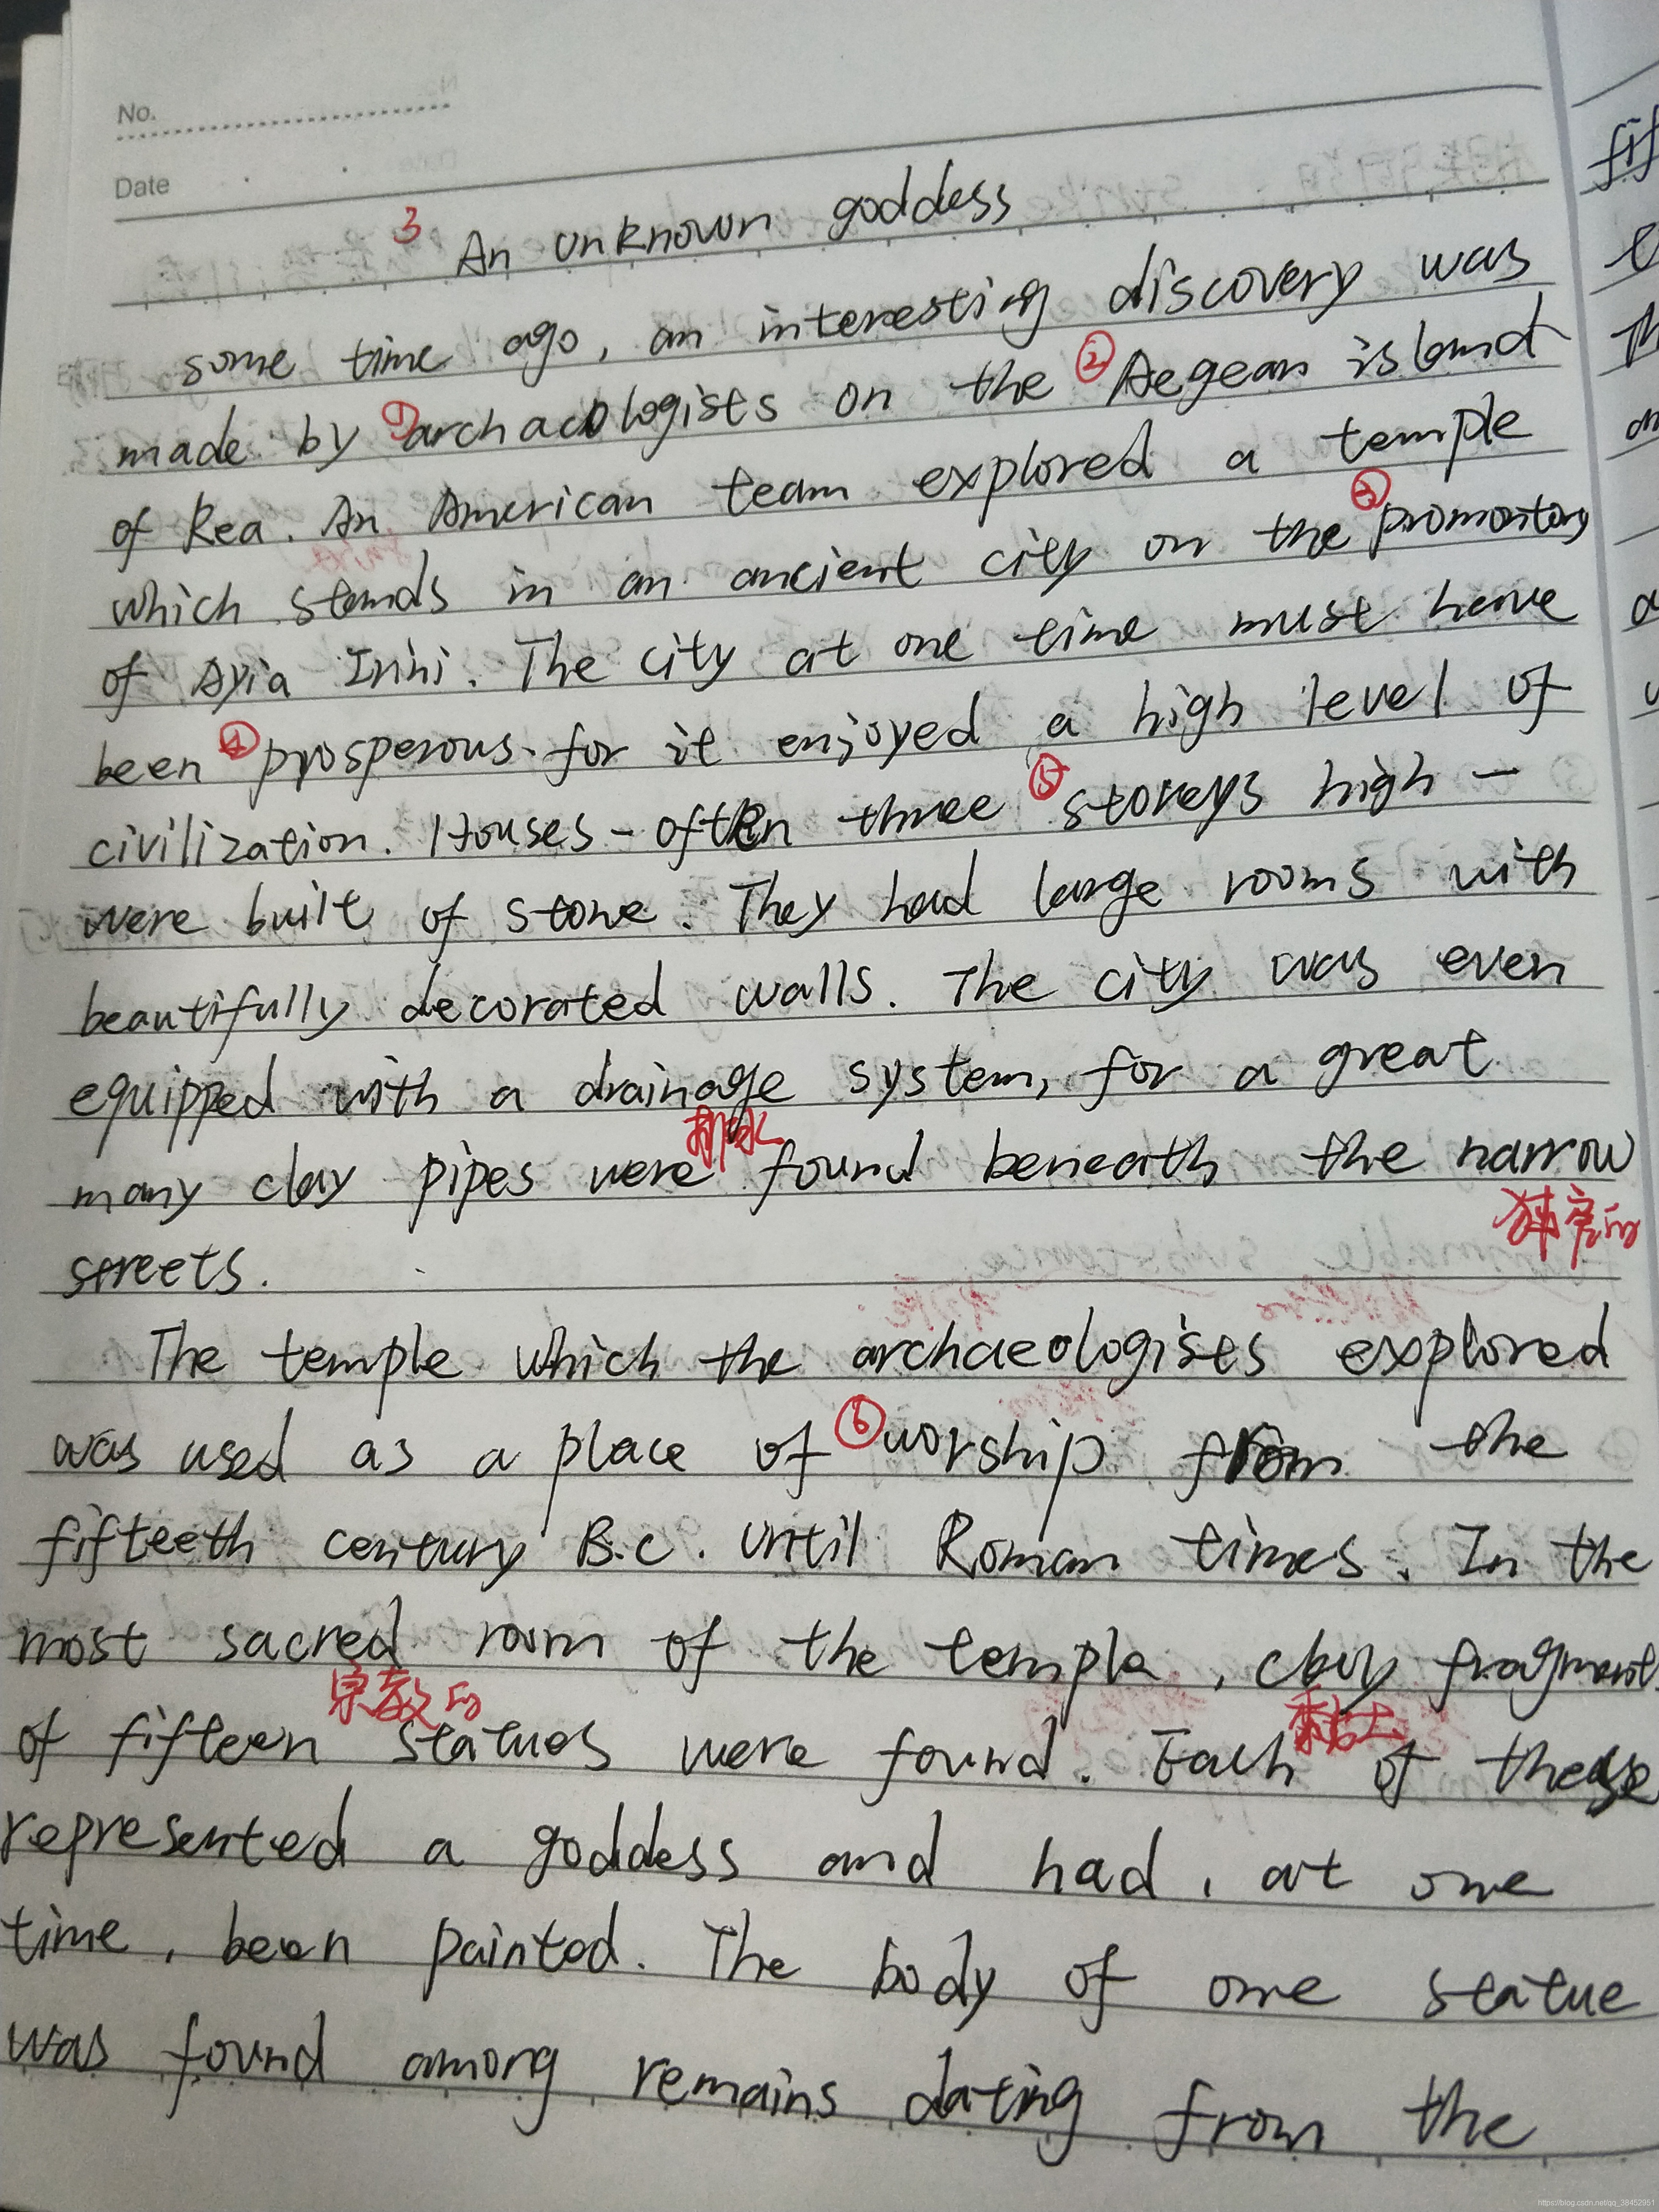 No.
Date
3 An unknown goddess
some time ago, an interesting discovery was
made by ①archaeologists on the ②Aegean island
of Kea. An American team explored a temple
which stands in an ancient city on the ③promontory
of Ayia Irini. The city at one time must have
been ④prosperous. for it enjoyed a high level of
civilization. Houses - often three ⑤storeys high -
were built of stone. They had large rooms with
beautifully decorated walls. The city was even
equipped with a drainage system, for a great
排水
many clay pipes were found beneath the narrow
streets.
The temple which the archaeologists explored
was used as a place of ⑥worship from the
fifteeth century B.C. until Roman times. In the
most sacred room of the temple, clay fragment
宗教的 黏土
of fifteen statues were found. Each of these
represented a goddess and had, at one
time, been painted. The body of one statue
was found among remains dating from the
fif
https://blog.csdn.net/qq_38452951